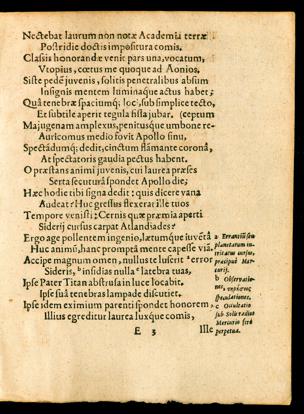 Nectebat laurum non notæ Academia terræ
Postridie doctis impositura comis.
Classis honorandæ venit pars una, vocatum,
Vtopius, cœtus me quoque ad Aonios.
Siste pedē juvenis, solitis penetralibus absum
Insignis mentem luminaque actus habet;
Quâ tenebræ spaciumq; loc', sub simplice tecto,
Et subtile aperit tegula fissa jubar. (ceptum
Majugenam amplexus, penitusque umbone re-
Auricomus medio fovit Apollo sinu,
Spectādumq; dedit, cinctum flāmante coronâ,
At spectatoris gaudia pectus habent.
O præstans animi juvenis, cui laurea præses
Serta secuturâ spondet Apollo die;
Hæc hodie tibi signa dedit: quis dicere vana
Audeat? Huc gressus flexerat ille tuos
Tempore venisti: Cernis quæ præmia aperti
Siderij cursus carpat Atlandiades?
Ergo age pollentem ingenio, lætumque iuventâ
Huc animū, hanc promptâ mente capesse viā,
Accipe magnum omen, nullus te luserit ᵃ error
Sideris, ᵇ insidias nulla ᶜ latebra tuas,
Ipse Pater Titan abstrusa in luce locabit.
Ipse suâ tenebras lampade discutiet.
Ipse idem eximium parenti spondet honorem,
Illius egreditur laurea luxque comis,
E 3 Ille
a Erronis seu
planetarum in-
tricatus cursus,
præcipuè Mer-
curij.
b Observatio-
nes,
speculationes,
c Occultatio
sub Solis radios
Mercurio ferè
perpetua.